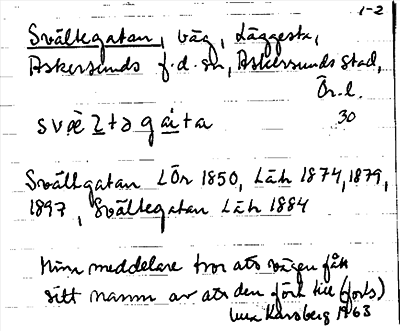 1-2
Svältegatan, väg, Läggesta,
Askersunds f.d. sn, Askersunds stad,
Ör.l.
svæ̀ltəgàta 30
Svältgatan LÖr 1850, Läh 1874, 1879,
1897, Svältegatan Läh 1884
Min meddelare tror att vägen fått
sitt namn av att den förde till (forts)
Karsberg 1963